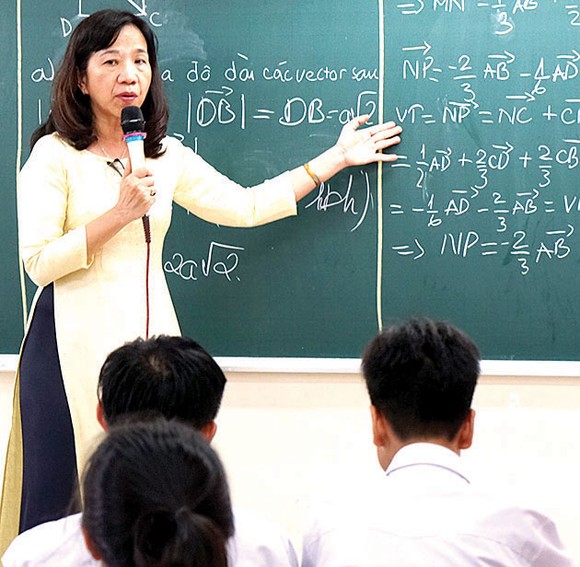 D C
a) a độ dài các vector sau
|DB⃗| = DB = a√2
hbh)
2a√2.
⇒ MN⃗ = 1/3 AB⃗
NP⃗ = -2/3 AB⃗ - 1/6 AD⃗
VT = NP⃗ = NC⃗ +
= 1/2 AD⃗ + 2/3 CD⃗ + 2/3 CB⃗
= -1/6 AD⃗ - 2/3 AB⃗ =
⇒ NP = -2/3 AB⃗